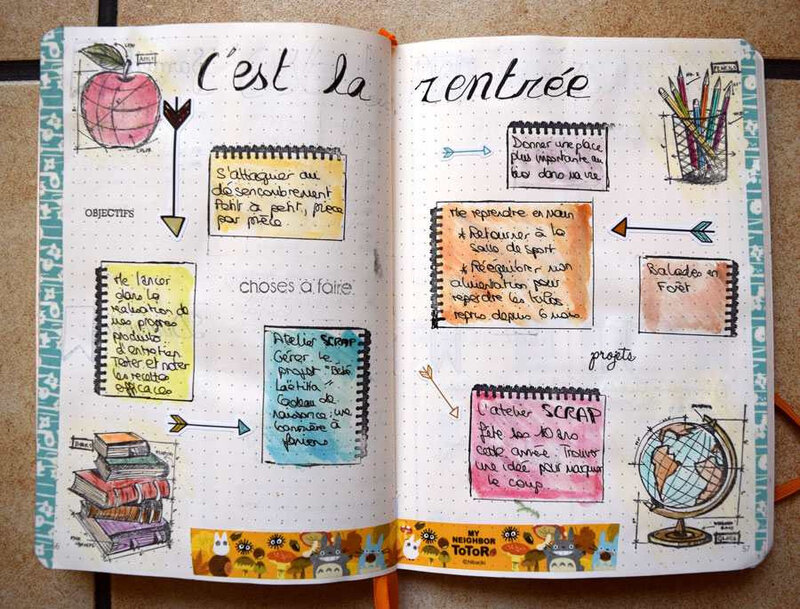 c'est la rentrée
APPLE
S'attaquer au
désencombrement
Petit à petit, pièce
par pièce
OBJECTIFS
Me lancer
dans la
réalisation de
mes propres
produits
d'entretien
Tester et noter
les recettes
efficaces
choses à faire
Atelier SCRAP
Gérer le
projet "Bébé
Laëtitia"
Cadeau de
naissance : une
bannière à
fanions
BOOKS
PENCILS
Donner une place
plus importante au
dans ma vie
Me reprendre en main
* Retourner à la
salle de sport
* Rééquilibrer mon
alimentation pour
reperdre les kilos
repris depuis 6 mois
Balades en
Forêt
projets
L'atelier SCRAP
fête ses 10 ans
cette année. Trouver
une idée pour marquer
le coup
GLOBE
MY
NEIGHBOR
TOTORO
57